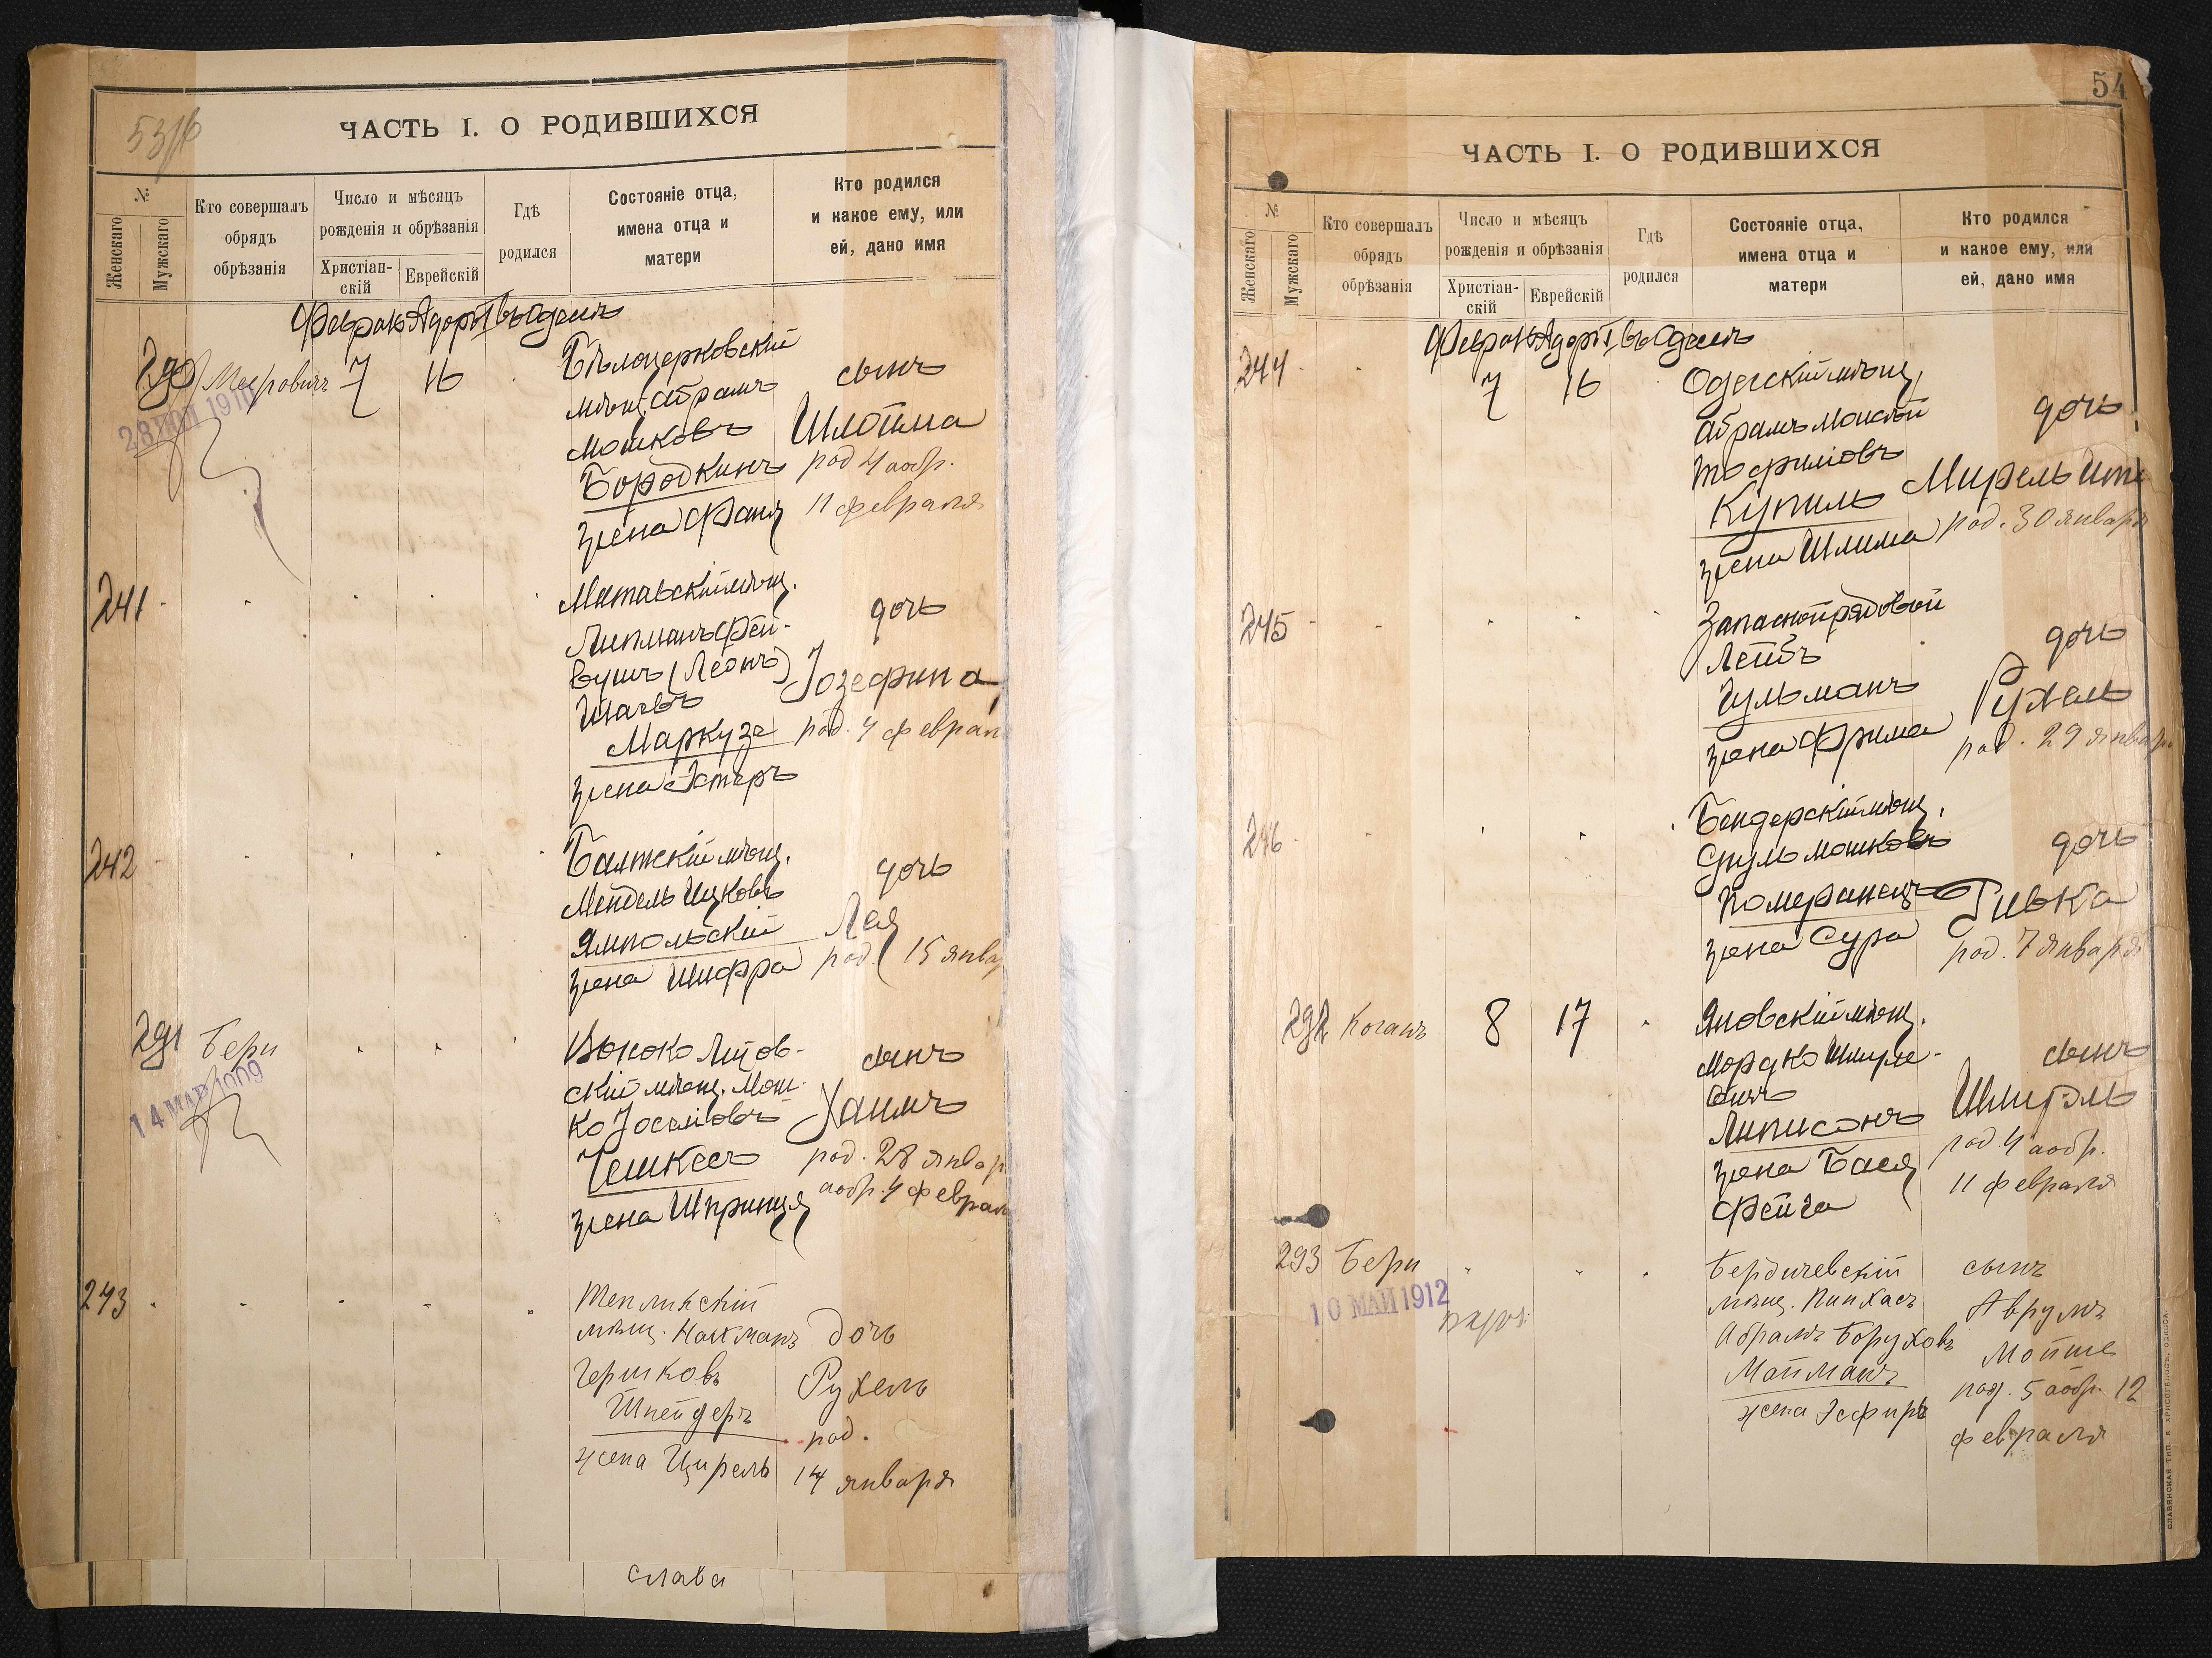 53 / б
ЧАСТЬ I. О РОДИВШИХСЯ
№
Женскаго
Мужскаго
Кто совершалъ
обрядъ
обрѣзанія
Число и мѣсяцъ
рожденія и обрѣзанія
Христіан-
скій
Еврейскій
Гдѣ
родился
Состояніе отца,
имена отца и
матери
Кто родился
и какое ему, или
ей, дано имя
290 Меерович 7 16
28
1910
Бѣлоцерковскій
мѣщ. Абрамъ
Мошковъ
Бородкинъ
жена Фаня
сынъ
Шлойма
род 4 а обр.
11 февраля
241
мѣщ.
Липманъ Фей-
вушъ (Леонъ)
Маркузе
жена Эстеръ
дочь
Іозефина
род. 4 феврал
242
Балтскій мѣщ.
Мендель Ицковъ
Ямпольскій
жена Шифра
дочь
Лея
род. 15 янва
291 Бери
14 МАР 1909
Высоко Литов-
скій мѣщ. Мош-
ко Іоселіовъ
Чешкесъ
жена Шпринця
сынъ
Хаимъ
род. 28 январ
а обр. 4 феврал
243
Тепликскій
мѣщ. Нахманъ
Гершковъ
Шнейдеръ
жена Цирель
дочь
Рухель
род.
14 января
слава
54
ЧАСТЬ I. О РОДИВШИХСЯ
№
Женскаго
Мужскаго
Кто совершалъ
обрядъ
обрѣзанія
Число и мѣсяцъ
рожденія и обрѣзанія
Христіан-
скій
Еврейскій
Гдѣ
родился
Состояніе отца,
имена отца и
матери
Кто родился
и какое ему, или
ей, дано имя
244 7 16
Одесскій мѣщ.
Абрамъ Моисей
Купиль
жена Шлима
дочь
Мирель
род. 30 января
245
Запасной рядовой
Лейбъ
Гульманъ
жена Фрима
дочь
Рухель
род. 29 январ
246
Бендерскій мѣщ.
Сруль Мошковъ
Померанецъ
жена Сура
дочь
Ривка
род. 7 января
292 Коганъ 8 17
Яновскій мѣщ.
Мордко Шмуле-
вичъ
Липисонъ
жена Бася
Фейга
сынъ
Шмуэль
род. 4 а обр.
11 февраля
293 Бери
10 МАЙ 1912
Бердичевскій
мѣщ. Пинхасъ
Абрамъ Боруховъ
Майманъ
жена Эсфирь
сынъ
Аврумъ
Мойше
род. 5 а обр. 12
февраля
СЛАВЯНСКАЯ ТИП. Е. ХРИСОГЕЛОСЪ, ОДЕССА.